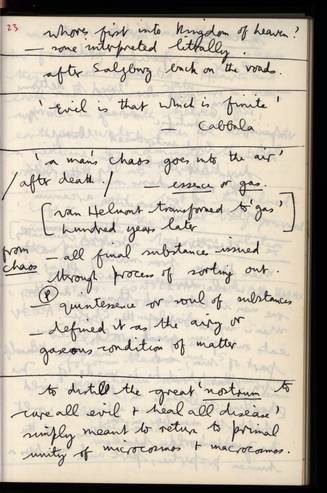 23
whores first into Kingdom of heaven?
— some interpreted litterally.
after Salzburg back on the roads.
'Evil is that which is finite'
— Cabbala
'a man's chaos goes into the air'
/after death./ — essence or gas.
[van Helmont transformed to 'gas'
hundred years later]
from chaos — all final substances issued
through process of sorting out.
Ⓟ quintessence or soul of substances
— defined it as the airy or
gaseous condition of matter
to distill the great 'nostrum to
cure all evil + heal all disease'
simply meant to return to primal
unity of microcosmos + macrocosmos.